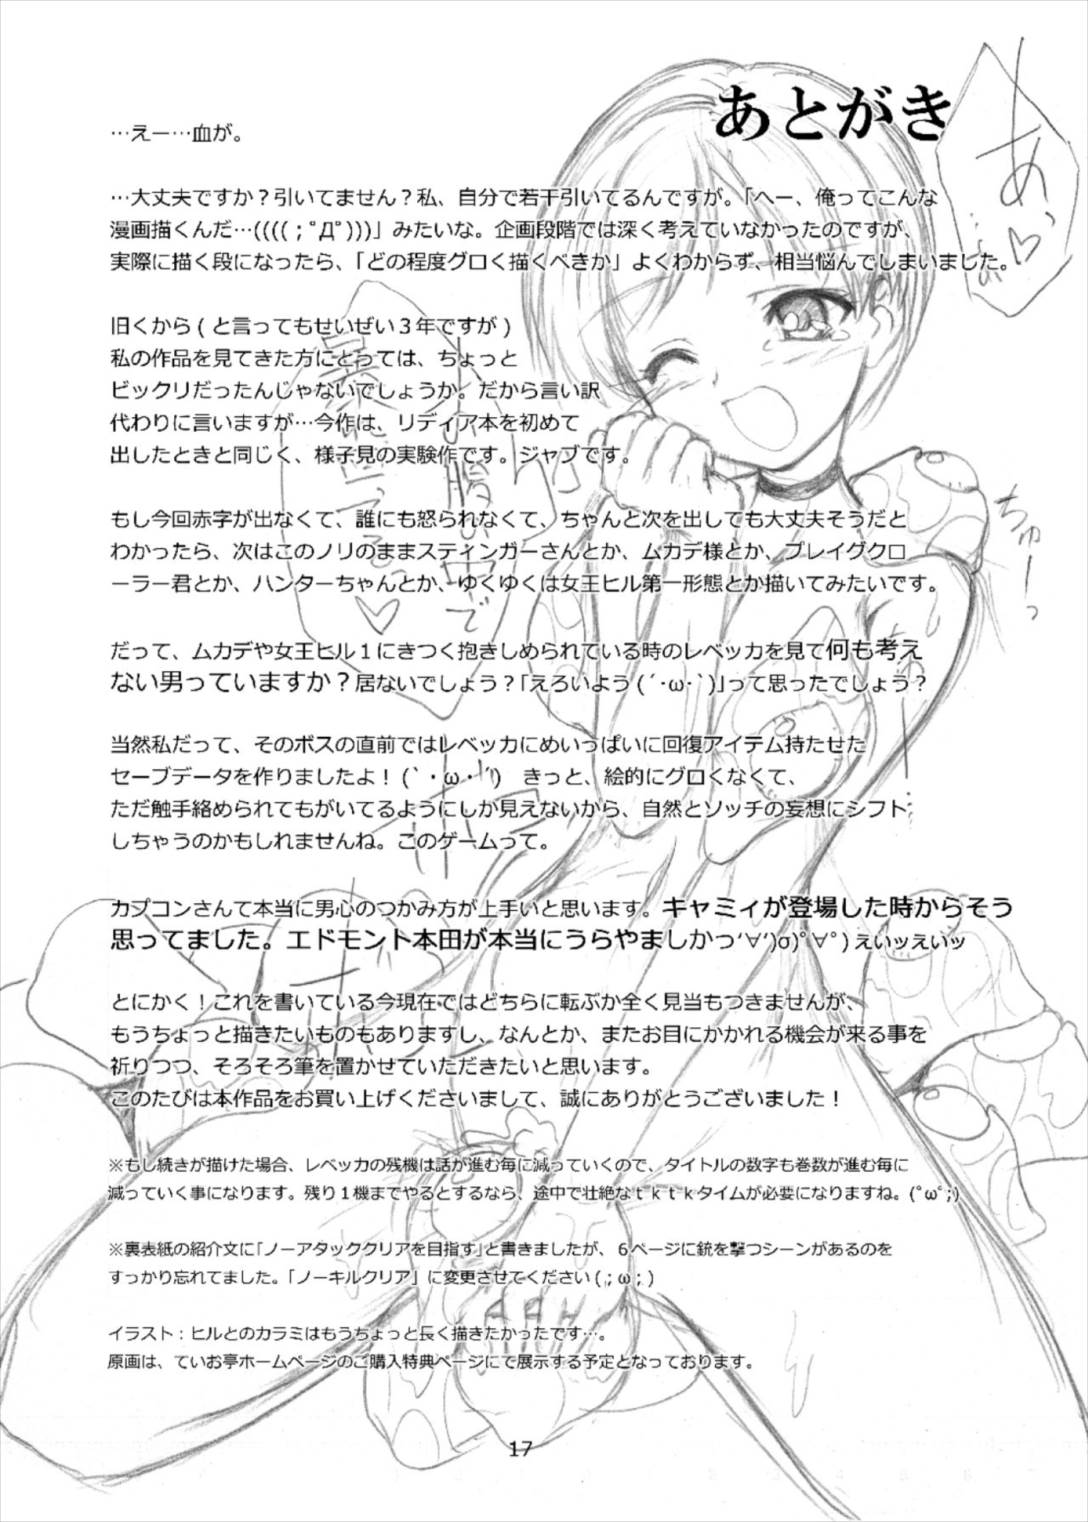 あとがき
…えー…血が。
…大丈夫ですか？引いてません？私、自分で若干引いてるんですが。「へー、俺ってこんな
漫画描くんだ…((((；ﾟДﾟ)))」みたいな。企画段階では深く考えていなかったのですが、
実際に描く段になったら、「どの程度グロく描くべきか」よくわからず、相当悩んでしまいました。
旧くから(と言ってもせいぜい３年ですが)
私の作品を見てきた方にとっては、ちょっと
ビックリだったんじゃないでしょうか。だから言い訳
代わりに言いますが…今作は、リディア本を初めて
出したときと同じく、様子見の実験作です。ジャブです。
もし今回赤字が出なくて、誰にも怒られなくて、ちゃんと次を出しても大丈夫そうだと
わかったら、次はこのノリのままスティンガーさんとか、ムカデ様とか、プレイグクロ
ーラー君とか、ハンターちゃんとか、ゆくゆくは女王ヒル第一形態とか描いてみたいです。
だって、ムカデや女王ヒル１にきつく抱きしめられている時のレベッカを見て何も考え
ない男っていますか？居ないでしょう？「えろいよう(´･ω･`)」って思ったでしょう？
当然私だって、そのボスの直前ではレベッカにめいっぱいに回復アイテム持たせた
セーブデータを作りましたよ！(`・ω・´) きっと、絵的にグロくなくて、
ただ触手絡められてもがいてるようにしか見えないから、自然とソッチの妄想にシフト
しちゃうのかもしれませんね。このゲームって。
カプコンさんて本当に男心のつかみ方が上手いと思います。キャミィが登場した時からそう
思ってました。エドモント本田が本当にうらやましかっ'∀')σ)ﾟ∀ﾟ)えいッえいッ
とにかく！これを書いている今現在ではどちらに転ぶか全く見当もつきませんが、
もうちょっと描きたいものもありますし、なんとか、またお目にかかれる機会が来る事を
祈りつつ、そろそろ筆を置かせていただきたいと思います。
このたびは本作品をお買い上げくださいまして、誠にありがとうございました！
※もし続きが描けた場合、レベッカの残機は話が進む毎に減っていくので、タイトルの数字も巻数が進む毎に
減っていく事になります。残り１機までやるとするなら、途中で壮絶なｔｋｔｋタイムが必要になりますね。(ﾟωﾟ;)
※裏表紙の紹介文に「ノーアタッククリアを目指す」と書きましたが、６ページに銃を撃つシーンがあるのを
すっかり忘れてました。「ノーキルクリア」に変更させてください(；ω；)
イラスト：ヒルとのカラミはもうちょっと長く描きたかったです…。
原画は、ていお亭ホームページのご購入特典ページにて展示する予定となっております。
17
あっ♡
ちゅーっ